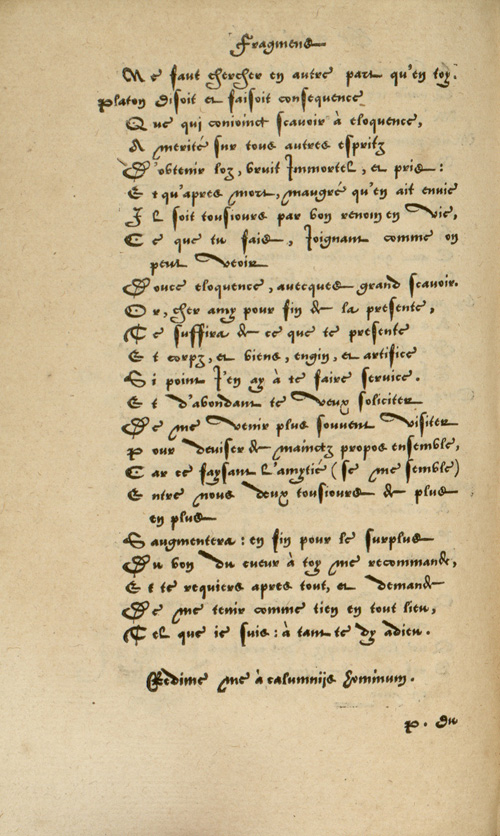 Fragmens
Ne faut chercher en autre part qu'en toy.
Platon disoit et faisoit consequence
Que qui conioinct scavoir à eloquence,
A merité sur tous autres espritz
D'obtenir loz, bruit Immortel, et pris :
Et qu'apres mort, maugré qu'en ait envie
Il soit tousiours par bon renom en vie,
Ce que tu fais, Joignant comme on
peut veoir
Douce eloquence, avecques grand scavoir.
Or, cher amy pour fin de la presente,
Te suffira de ce que te presente
Et corpz, et biens, engin, et artifice
Si point J'en ay à te faire service.
Et d'abondant te veux soliciter
De me venir plus souvent visiter
Pour deviser de mainctz propos ensemble,
Car ce faysant L'amytié (se me semble)
Entre nous deux tousiours de plus
en plus
S'augmentera : en fin pour le surplus
Du bon du cueur à toy me recommande,
Et te requiers apres tout, et demande
De me tenir comme tien en tout lieu,
Tel que ie suis : à tant te dy adieu.
Redime me à calumniis hominum.
P. du